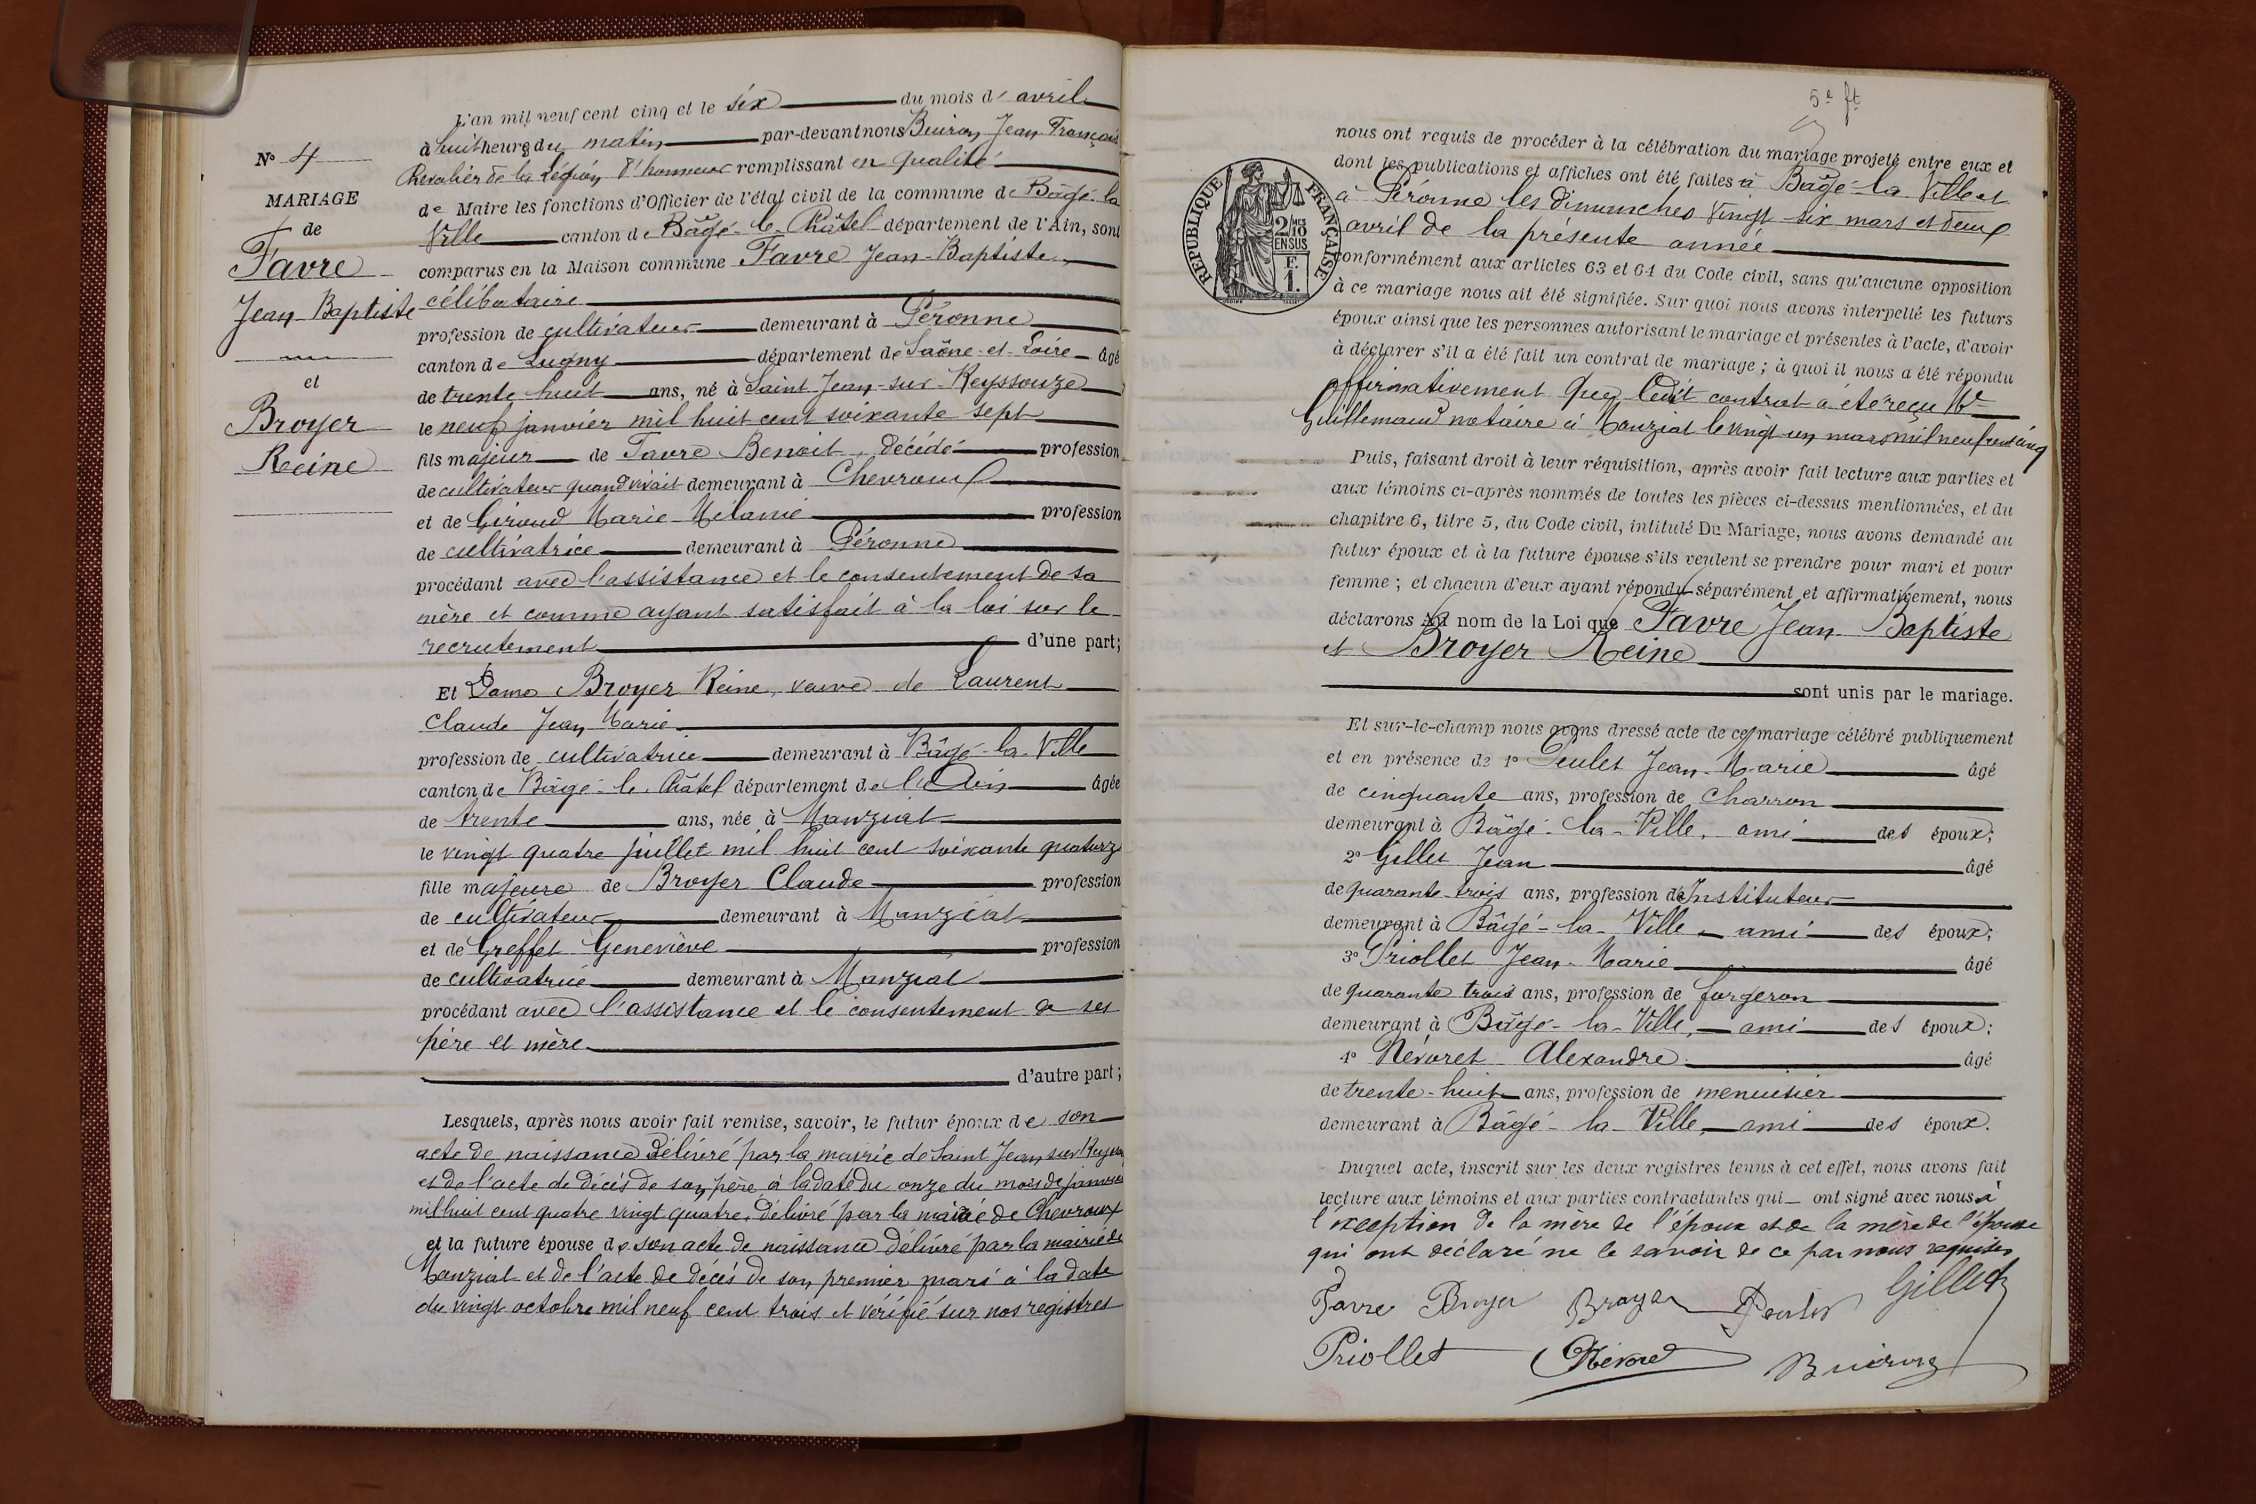 N° 4
MARIAGE
de
Favre
Jean Baptiste
et
Broyer
Reine
L'an mil neuf cent cinq et le six du mois d' avril
à huit heures du matin par-devant nous Buiron Jean François
Chevalier de la Légion d'honneur remplissant en qualité
de Maire les fonctions d'Officier de l'état civil de la commune de Bâgé-la
Ville canton de Bâgé-le-Châtel département de l'Ain, sont
comparus en la Maison commune Favre Jean-Baptiste
célibataire
profession de cultivateur demeurant à Péronne
canton de Lugny département de Saône-et-Loire âgé
de trente huit ans, né à Saint Jean-sur-Reyssouze
le neuf janvier mil huit cent soixante sept
fils majeur de Favre Benoit, décédé profession
de cultivateur quand vivait demeurant à Chevroux
et de Giroud Marie Mélanie profession
de cultivatrice demeurant à Péronne
procédant avec l'assistance et le consentement de sa
mère et comme ayant satisfait à la loi sur le
recrutement d'une part;
Et Dame Broyer Reine, veuve de Laurent
Claude Jean Marie
profession de cultivatrice demeurant à Bâgé-la-Ville
canton de Bâgé-le-Châtel département de l'Ain âgée
de trente ans, née à Manziat
le vingt quatre juillet mil huit cent soixante quatorze
fille majeure de Broyer Claude profession
de cultivateur demeurant à Manziat
et de Greffet Geneviève profession
de cultivatrice demeurant à Manziat
procédant avec l'assistance et le consentement de ses
père et mère
d'autre part;
Lesquels, après nous avoir fait remise, savoir, le futur époux de son
acte de naissance délivré par la mairie de Saint Jean sur Reyssouze
et de l'acte de décès de son père, à la date du onze du mois de janvier
mil huit cent quatre vingt quatre, délivré par la mairie de Chevroux
et la future épouse de son acte de naissance délivré par la mairie de
Manziat et de l'acte de décès de son premier mari à la date
du vingt octobre mil neuf cent trois et vérifié sur nos registres
5e ft
RÉPUBLIQUE FRANÇAISE
2/10
EN SUS
F.
1.
nous ont requis de procéder à la célébration du mariage projeté entre eux et
dont les publications et affiches ont été faites à Bâgé-la Ville et
à Péronne les dimanches vingt six mars et deux
avril de la présente année
conformément aux articles 63 et 64 du Code civil, sans qu'aucune opposition
à ce mariage nous ait été signifiée. Sur quoi nous avons interpellé les futurs
époux ainsi que les personnes autorisant le mariage et présentes à l'acte, d'avoir
à déclarer s'il a été fait un contrat de mariage; à quoi il nous a été répondu
affirmativement que ledit contrat a été reçu Me
Guillemaud notaire à Manziat le vingt un mars mil neuf cent cinq
Puis, faisant droit à leur réquisition, après avoir fait lecture aux parties et
aux témoins ci-après nommés de toutes les pièces ci-dessus mentionnées, et du
chapitre 6, titre 5, du Code civil, intitulé Du Mariage, nous avons demandé au
futur époux et à la future épouse s'ils veulent se prendre pour mari et pour
femme; et chacun d'eux ayant répondu séparément et affirmativement, nous
déclarons au nom de la Loi que Favre Jean Baptiste
et Broyer Reine
sont unis par le mariage.
Et sur-le-champ nous avons dressé acte de ce mariage célébré publiquement
et en présence de 1° Peulet Jean-Marie âgé
de cinquante ans, profession de charron
demeurant à Bâgé-la-Ville, ami des époux;
2° Gillet Jean âgé
de quarante-trois ans, profession d'Instituteur
demeurant à Bâgé-la-Ville ami des époux;
3° Priollet Jean-Marie âgé
de quarante trois ans, profession de forgeron
demeurant à Bâgé-la-Ville, ami des époux;
4° Névoret Alexandre âgé
de trente-huit ans, profession de menuisier
demeurant à Bâgé-la-Ville, ami des époux.
Duquel acte, inscrit sur les deux registres tenus à cet effet, nous avons fait
lecture aux témoins et aux parties contractantes qui ont signé avec nous à
l'exception de la mère de l'époux et de la mère de l'épouse
qui ont déclaré ne le savoir de ce par nous requises
Favre Broyer Broyer Peulet Gillet
Priollet Névoret Buiron